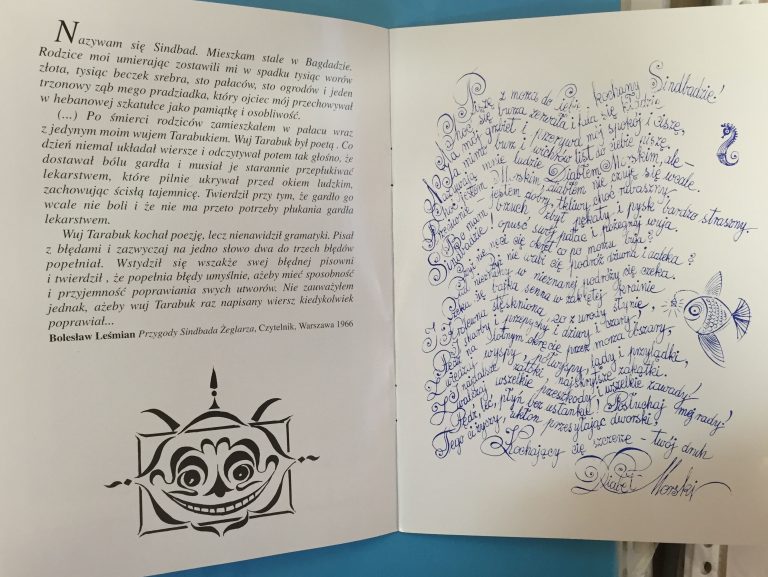 Nazywam się Sindbad. Mieszkam stale w Bagdadzie.
Rodzice moi umierając zostawili mi w spadku tysiąc worów
złota, tysiąc beczek srebra, sto pałaców, sto ogrodów i jeden
trzonowy ząb mego pradziadka, który ojciec mój przechowywał
w hebanowej szkatułce jako pamiątkę i osobliwość.
(...) Po śmierci rodziców zamieszkałem w pałacu wraz
z jedynym moim wujem Tarabukiem. Wuj Tarabuk był poetą . Co
dzień niemal układał wiersze i odczytywał potem tak głośno, że
dostawał bólu gardła i musiał je starannie przepłukiwać
lekarstwem, które pilnie ukrywał przed okiem ludzkim,
zachowując ścisłą tajemnicę. Twierdził przy tym, że gardło go
wcale nie boli i że nie ma przeto potrzeby płukania gardła
lekarstwem.
Wuj Tarabuk kochał poezję, lecz nienawidził gramatyki. Pisał
z błędami i zazwyczaj na jedno słowo dwa do trzech błędów
popełniał. Wstydził się wszakże swej błędnej pisowni
i twierdził , że popełnia błędy umyślnie, ażeby mieć sposobność
i przyjemność poprawiania swych utworów. Nie zauważyłem
jednak, ażeby wuj Tarabuk raz napisany wiersz kiedykolwiek
poprawiał...
Bolesław Leśmian Przygody Sindbada Żeglarza, Czytelnik, Warszawa 1966
Piszę z morza do Ciebie, kochany Sindbadzie!
Choć się burza zerwała i fala się kładzie
Na mój grzbiet i przerywa mój spokój i ciszę,
Ja mimo burz i wichrów list do ciebie piszę.
Nazywają mnie ludzie Diabłem Morskim, ale –
Choć jestem Morskim, diabłem nie czuję się wcale.
Przeciwnie – jestem dobry, tkliwy, choć rubaszny –
To mam brzuch zbyt pękaty i pysk bardzo straszny.
Sindbadzie! opuść swój pałac i pożegnaj wuja.
Czyż nie nęci cię okręt, co po morzu buja?
Czyż nie wabi cię podróż dziwna i daleka?
Ktoś nieznany w nieznanej podróży cię czeka.
I czeka cię bajka senna w zaklętej krainie
I królewna stęskniona, co z urody słynie,
I skarby i przepychy i dziwy i czary!
Płyń na lotnym okręcie przez morza obszary,
Zwiedzaj wyspy, półwyspy, lądy i przylądki,
I najdalsze zatoki, najskrytsze zakątki.
Zwalczaj wszelkie przeszkody i wszelkie zawady!
Pędź, leć, płyń bez ustanku! Posłuchaj mej rady!
Tego ci życzy, ukłon przesyłając dworski,
Kochający cię szczerze – twój druh
Diabeł Morski